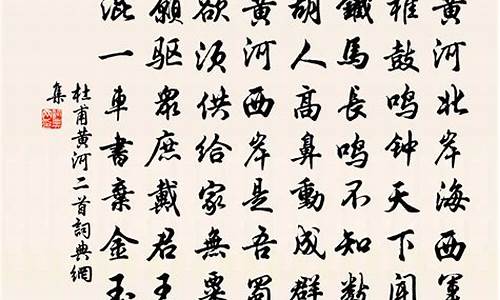 黄河北岸海西軍
椎鼓鸣钟天下闻
鐵馬長鸣不知數
胡人高鼻動成群
黄河西岸是吾蜀
欲须供给家無粟
願驱眾庶戴君王
混一車書棄金玉
杜甫黄河二首詞典網
集